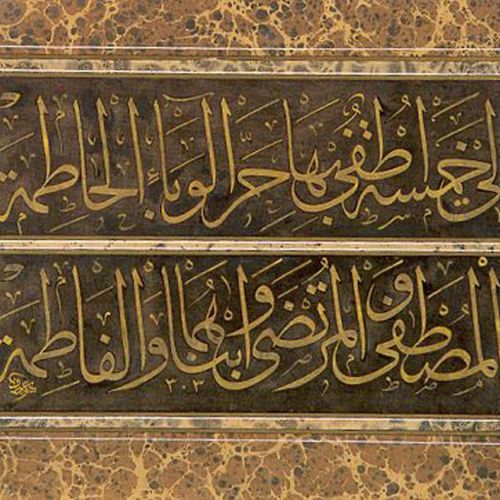 لى خمسة اطفى بها حر الوباء الحاطمة
المصطفى و المرتضى و ابناهما و الفاطمة
٣٠٣